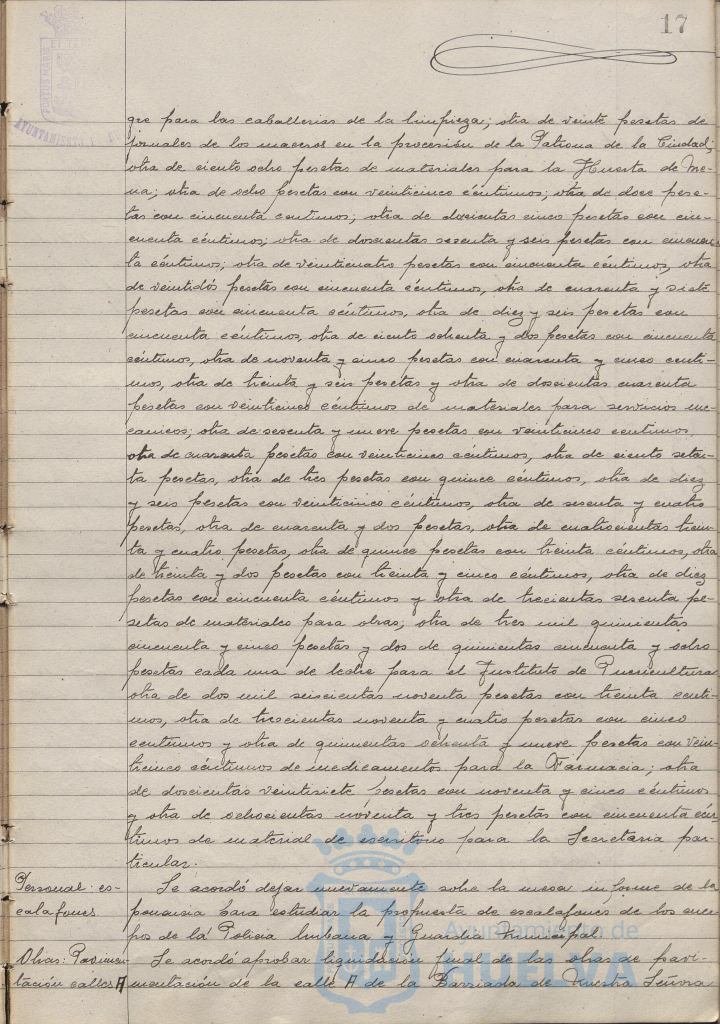 17
AYUNTAMIENTO
que para las caballerias de la limpieza; otra de veinte pesetas de
jornales de los maceros en la procesión de la Patrona de la Ciudad;
otra de ciento ocho pesetas de materiales para la Huerta de Me-
na; otra de ocho pesetas con veinticinco céntimos; otra de doce pese-
tas con cincuenta centimos; otra de doscientas cinco pesetas con cin-
cuenta céntimos; otra de doscientas sesenta y seis pesetas con cincuen-
ta céntimos; otra de veinticuatro pesetas con cincuenta céntimos, otra
de veintidós pesetas con cincuenta céntimos, otra de cuarenta y siete
pesetas con cincuenta céntimos, otra de diez y seis pesetas con
cincuenta céntimos, otra de ciento ochenta y dos pesetas con cincuenta
céntimos, otra de noventa y cinco pesetas con cuarenta y cinco centi-
mos, otra de treinta y seis pesetas y otra de doscientas cuarenta
pesetas con veinticinco céntimos de materiales para servicios me-
canicos; otra de sesenta y nueve pesetas con veinticinco centimos,
otra de cuarenta pesetas con veinticinco céntimos, otra de ciento seten-
ta pesetas, otra de tres pesetas con quince céntimos, otra de diez
y seis pesetas con veinticinco céntimos, otra de sesenta y cuatro
pesetas, otra de cuarenta y dos pesetas, otra de cuatrocientas trein-
ta y cuatro pesetas, otra de quince pesetas con treinta céntimos, otra
de treinta y dos pesetas con treinta y cinco céntimos, otra de diez
pesetas con cincuenta céntimos y otra de trecientas sesenta pe-
setas de materiales para obras; otra de tres mil quinientas
cincuenta y cinco pesetas y dos de quinientas cincuenta y ocho
pesetas cada una de leche para el Instituto de Puericultura,
otra de dos mil seiscientas noventa pesetas con treinta centi-
mos, otra de trescientas noventa y cuatro pesetas con cinco
centimos y otra de quinientas ochenta y nueve pesetas con vein-
ticinco céntimos de medicamentos para la Farmacia; otra
de doscientas veintisiete pesetas con noventa y cinco céntimos
y otra de ochocientas noventa y tres pesetas con cincuenta cén-
timos de material de escritorio para la Secretaria par-
ticular.
Personal: es-
calafones.
Se acordó dejar nuevamente sobre la mesa informe de la
ponencia para estudiar la propuesta de escalafones de los cuer-
pos de la Policia Urbana y Guardia Municipal.
Obras: Pavimen-
tación calles A
Se acordó aprobar liquidación final de las obras de pavi-
mentación de la calle A de la Barriada de Nuestra Señora
Ayuntamiento de
HUELVA